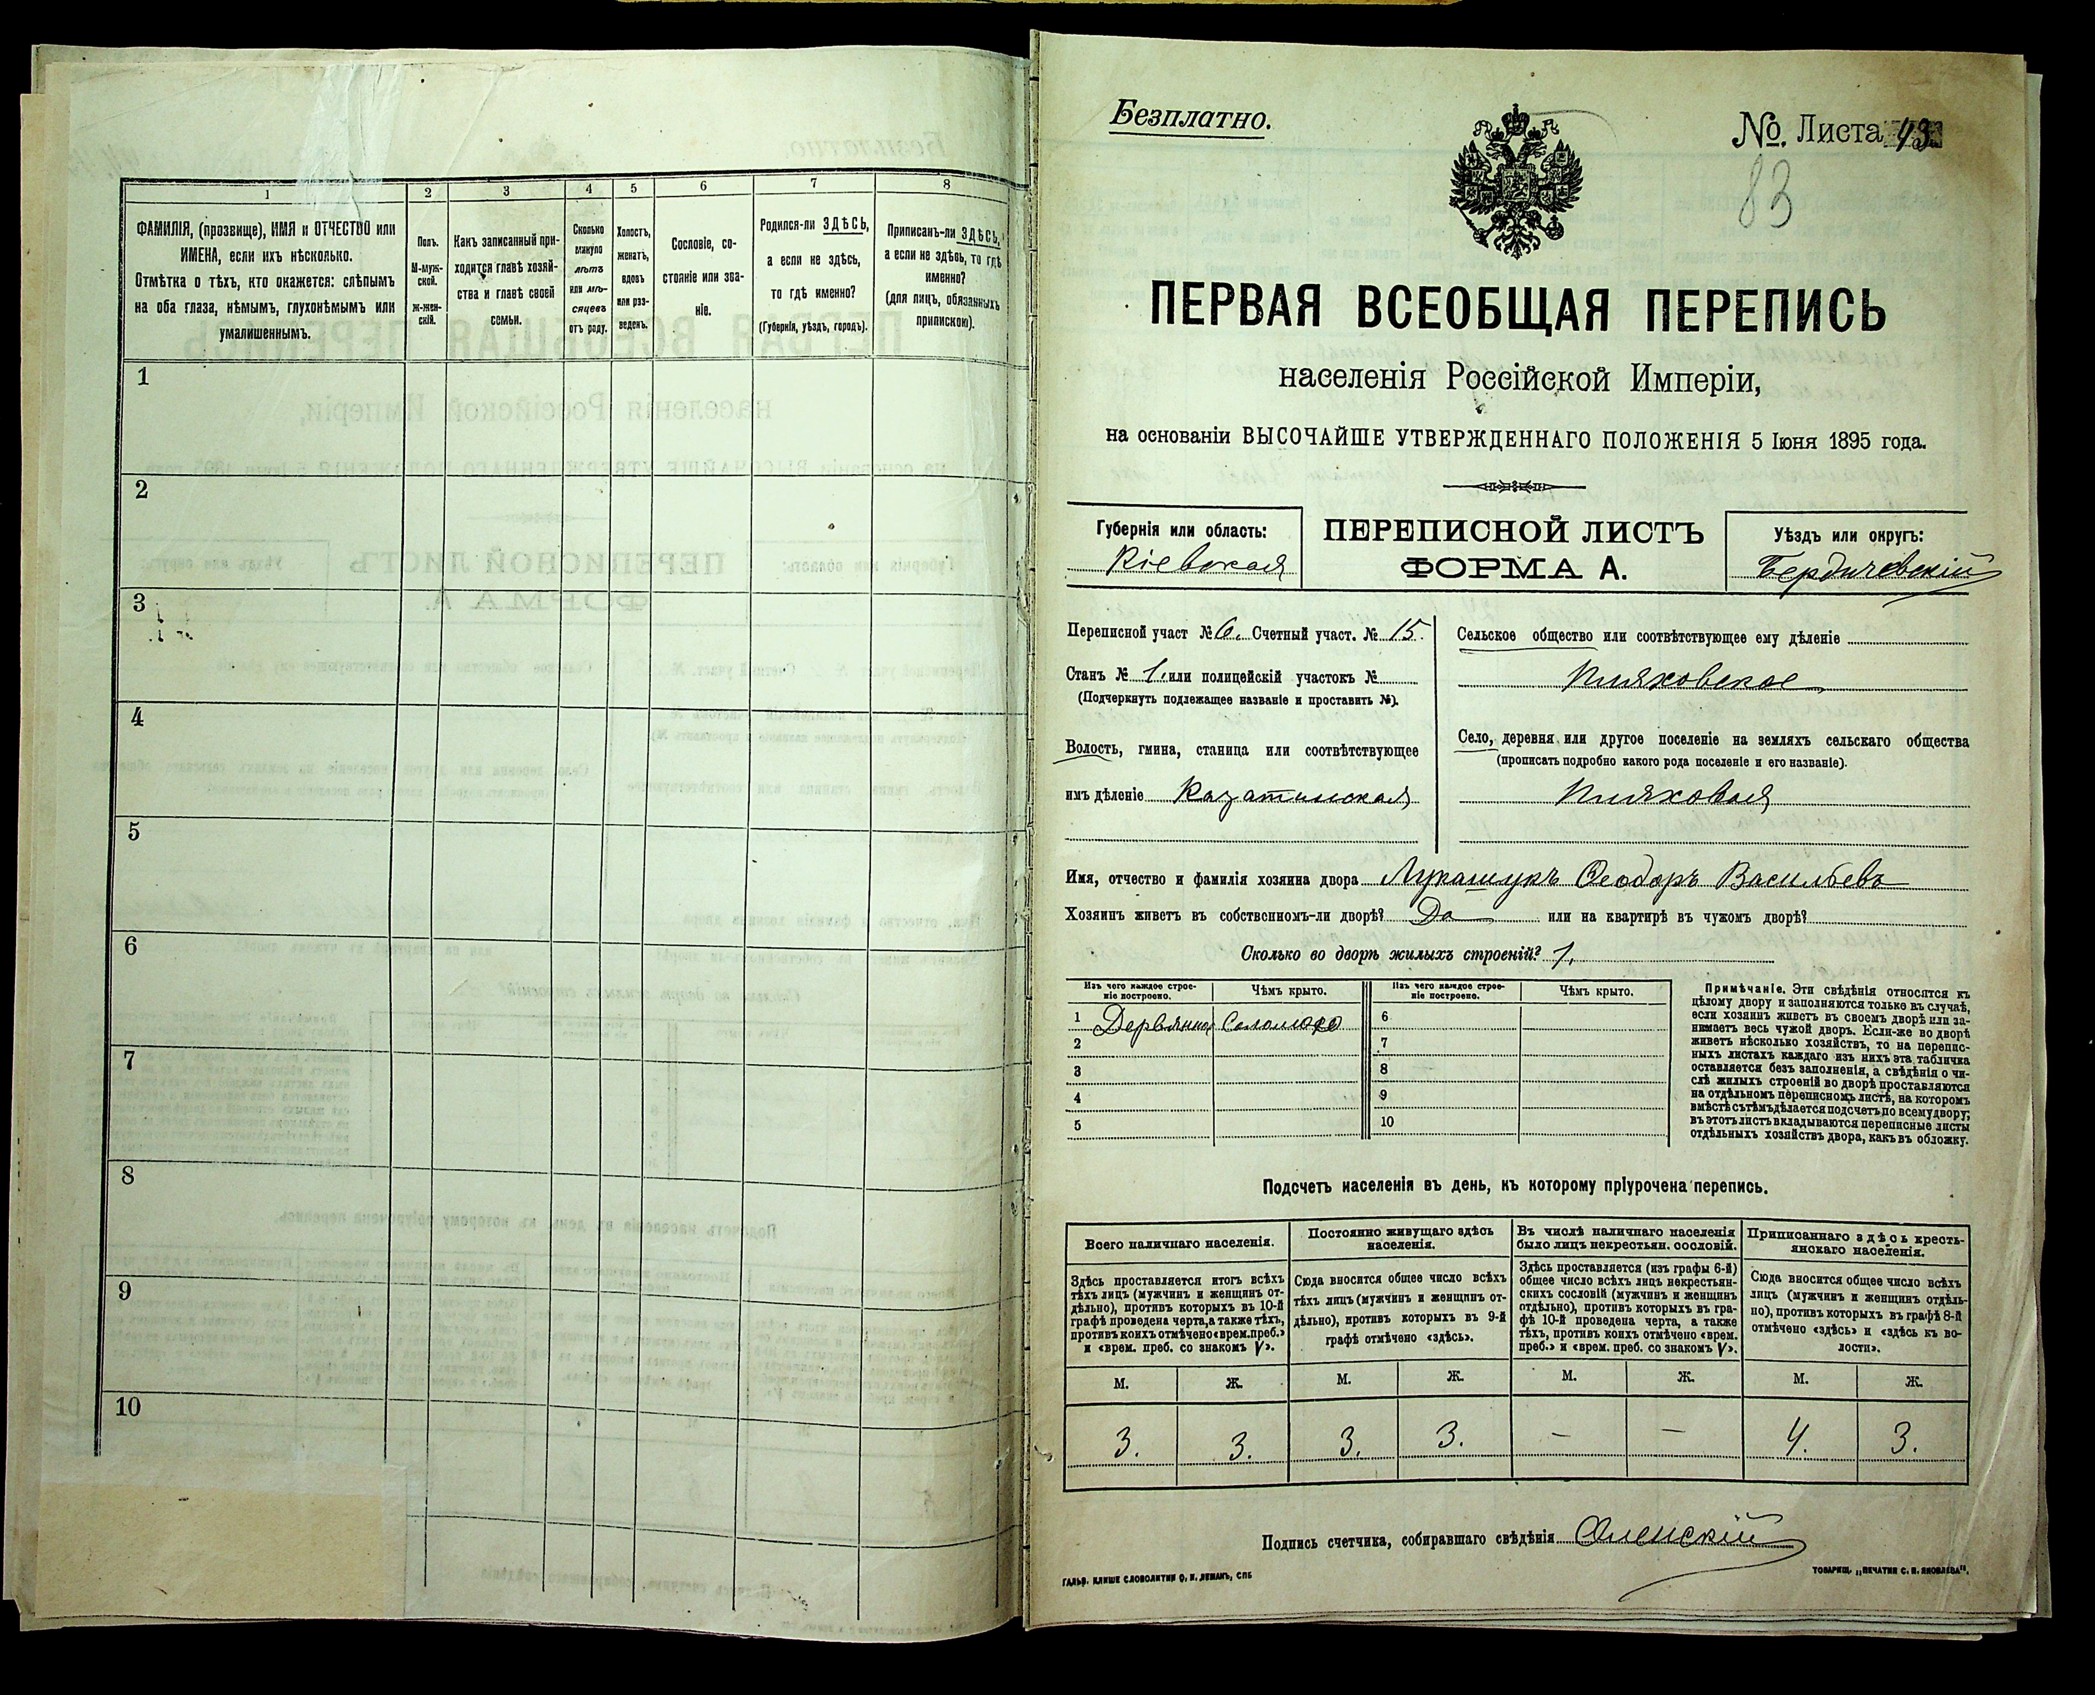 1 2 3 4 5 6 7 8
ФАМИЛІЯ, (прозвище), ИМЯ и ОТЧЕСТВО или
ИМЕНА, если ихъ нѣсколько.
Отмѣтка о тѣхъ, кто окажется: слѣпымъ
на оба глаза, нѣмымъ, глухонѣмымъ или
умалишеннымъ.
Полъ.
М-муж-
ской.
Ж-жен-
скій.
Какъ записанный при-
ходится главѣ хозяй-
ства и главѣ своей
семьи.
Сколько
минуло
лѣтъ
или мѣ-
сяцевъ
отъ роду.
Холостъ,
женатъ,
вдовъ
или раз-
веденъ.
Сословіе, со-
стояніе или зва-
ніе.
Родился-ли ЗДѢСЬ,
а если не здѣсь,
то гдѣ именно?
(Губернія, уѣздъ, городъ).
Приписанъ-ли ЗДѢСЬ,
а если не здѣсь, то гдѣ
именно?
(для лицъ, обязанныхъ
припискою).
1
2
3
4
5
6
7
8
9
10
Безплатно.
№. Листа 43
83
ПЕРВАЯ ВСЕОБЩАЯ ПЕРЕПИСЬ
населенія Россійской Имперіи,
на основаніи ВЫСОЧАЙШЕ УТВЕРЖДЕННАГО ПОЛОЖЕНІЯ 5 Іюня 1895 года.
Губернія или область:
Кіевская
ПЕРЕПИСНОЙ ЛИСТЪ
ФОРМА А.
Уѣздъ или округъ:
Бердичевскій
Переписной участ № 6. Счетный участ. № 15.
Станъ № 1. или полицейскій участокъ №
(Подчеркнуть подлежащее названіе и проставить №).
Волость, гмина, станица или соотвѣтствующее
имъ дѣленіе Казатинская
Сельское общество или соотвѣтствующее ему дѣленіе
Пляховское
Село, деревня или другое поселеніе на земляхъ сельскаго общества
(прописать подробно какого рода поселеніе и его названіе).
Пляховая
Имя, отчество и фамилія хозяина двора Лукашукъ Ѳеодоръ Васильевъ
Хозяинъ живетъ въ собственномъ-ли дворѣ? Да или на квартирѣ въ чужомъ дворѣ?
Сколько во дворѣ жилыхъ строеній? 1.
Изъ чего каждое строе-
ніе построено.
Чѣмъ крыто.
Изъ чего каждое строе-
ніе построено.
Чѣмъ крыто.
1 Деревянное Соломою 6
2 7
3 8
4 9
5 10
Примѣчаніе. Эти свѣдѣнія относятся къ
цѣлому двору и заполняются только въ случаѣ,
если хозяинъ живетъ въ своемъ дворѣ или за-
нимаетъ весь чужой дворъ. Если-же во дворѣ
живетъ нѣсколько хозяйствъ, то на перепис-
ныхъ листахъ каждаго изъ нихъ эта табличка
оставляется безъ заполненія, а свѣдѣнія о чи-
слѣ жилыхъ строеній во дворѣ проставляются
на отдѣльномъ переписномъ листѣ, на которомъ
вмѣстѣ съ тѣмъ дѣлается подсчетъ по всему двору;
въ этотъ листъ вкладываются переписные листы
отдѣльныхъ хозяйствъ двора, какъ въ обложку.
Подсчетъ населенія въ день, къ которому пріурочена перепись.
Всего наличнаго населенія.
Здѣсь проставляется итогъ всѣхъ
тѣхъ лицъ (мужчинъ и женщинъ от-
дѣльно), противъ которыхъ въ 10-й
графѣ проведена черта, а также тѣхъ,
противъ коихъ отмѣчено «врем. преб.»
и «врем. преб. со знакомъ V».
Постоянно живущаго здѣсь
населенія.
Сюда вносится общее число всѣхъ
тѣхъ лицъ (мужчинъ и женщинъ от-
дѣльно), противъ которыхъ въ 9-й
графѣ отмѣчено «здѣсь».
Въ числѣ наличнаго населенія
было лицъ некрестьян. сословій.
Здѣсь проставляется (изъ графы 6-й)
общее число всѣхъ лицъ некрестьян-
скихъ сословій (мужчинъ и женщинъ
отдѣльно), противъ которыхъ въ гра-
фѣ 10-й проведена черта, а также
тѣхъ, противъ коихъ отмѣчено «врем.
преб.» и «врем. преб. со знакомъ V».
Приписаннаго здѣсь кресть-
янскаго населенія.
Сюда вносится общее число всѣхъ
лицъ (мужчинъ и женщинъ отдѣль-
но), противъ которыхъ въ графѣ 8-й
отмѣчено «здѣсь» и «здѣсь къ во-
лости».
М. Ж. М. Ж. М. Ж. М. Ж.
3. 3. 3. 3. — — 4. 3.
Подпись счетчика, собиравшаго свѣдѣнія Оленскій
ГАЛЬВ. КЛИШЕ СЛОВОЛИТНИ О. И. ЛЕМАНЪ, СПБ
ТОВАРИЩ. „ПЕЧАТНЯ С. П. ЯКОВЛЕВА".